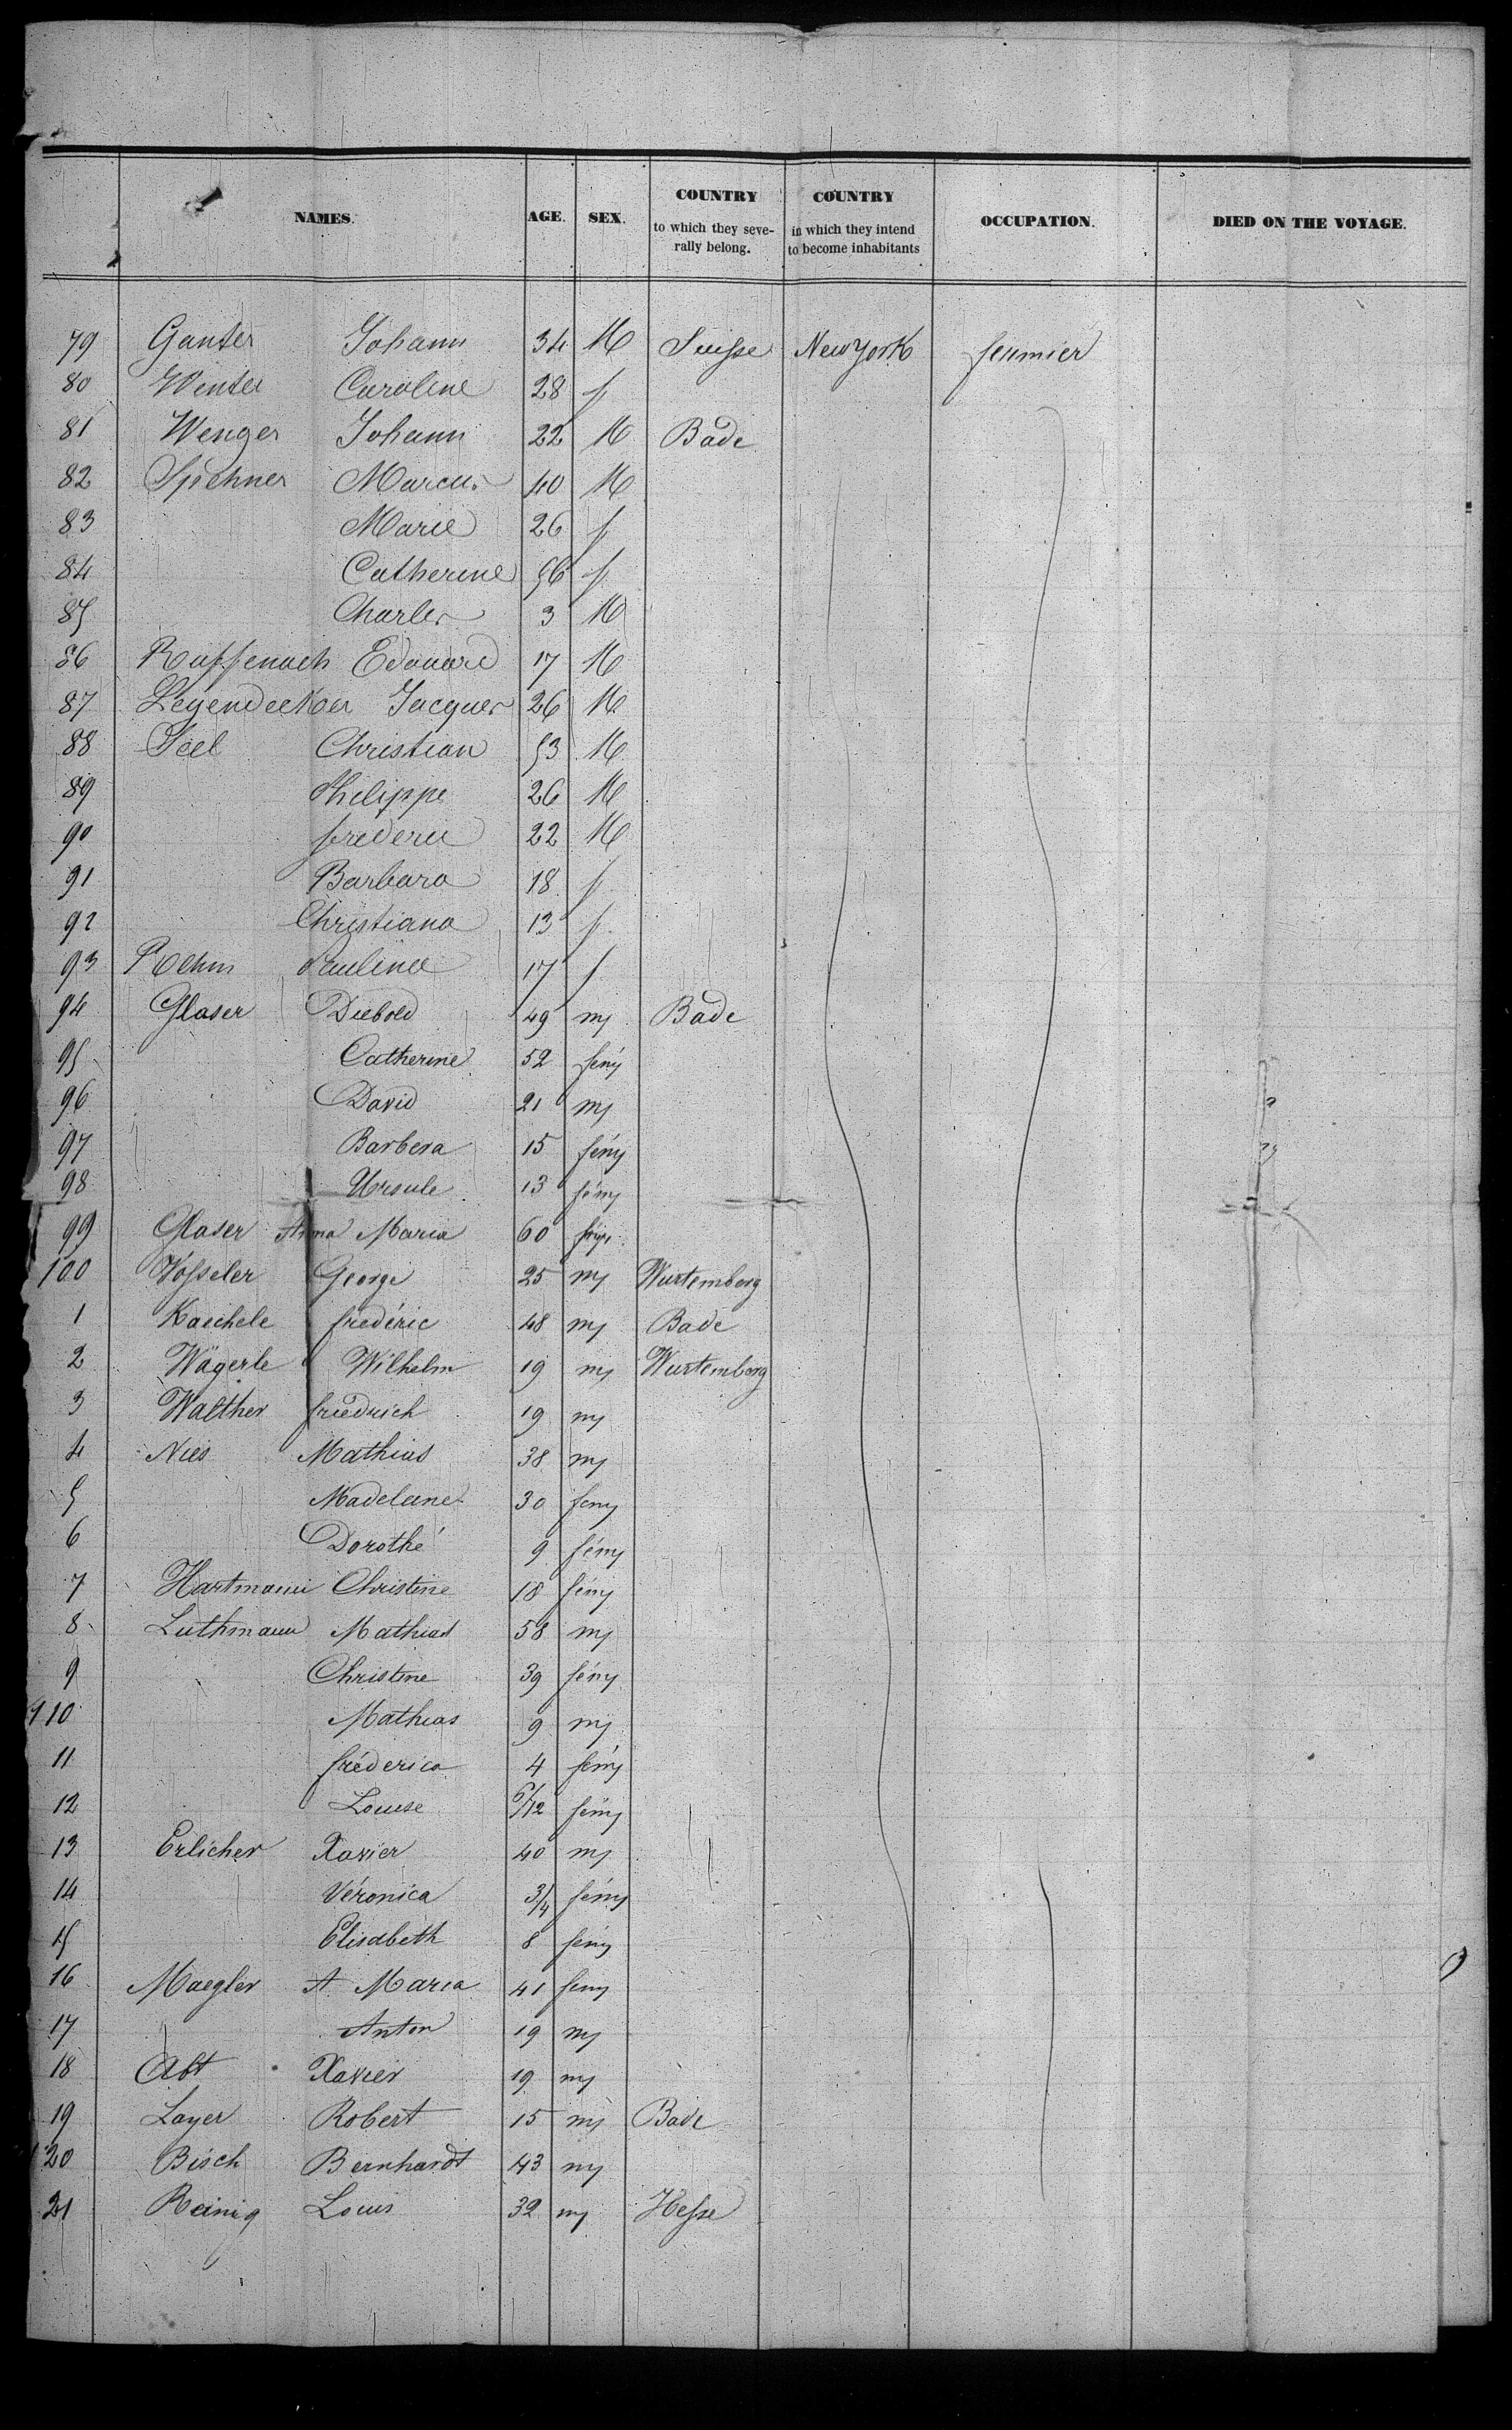 NAMES. AGE. SEX. COUNTRY to which they seve- rally belong. COUNTRY in which they intend to become inhabitants OCCUPATION. DIED ON THE VOYAGE.
79 Ganter Johann 34 M Suisse New York fermier
80 Winter Caroline 28 f
81 Wenger Johann 22 M Bade
82 Spehner Marcus 40 M
83 Marie 26 f
84 Catherine 56 f
85 Charles 3 M
86 Ruffenach Edouard 17 M
87 Leyendecker Jacques 26 M
88 Seel Christian 53 M
89 Philippe 26 M
90 frederic 22 M
91 Barbara 18 f
92 Christiana 13 f
93 Rehm Paulina 17 f
94 Glaser Diebold 49 m Bade
95 Catherine 52 fém
96 David 21 m
97 Barbera 15 fém
98 Ursule 13 fém
99 Glaser Anna Maria 60 fém
100 Vosseler George 25 m Wurtemberg
1 Kaechele frédéric 48 m Bade
2 Wägerle Wilhelm 19 m Wurtemberg
3 Walther friedrich 19 m
4 Nies Mathias 38 m
5 Madeleine 30 fem
6 Dorothé 9 fém
7 Hartmann Christine 18 fém
8 Luthmann Mathias 58 m
9 Christine 39 fém
110 Mathias 9 m
11 fréderica 4 fém
12 Louise 6/12 fém
13 Erlicher Xavier 40 m
14 Véronica 3/4 fém
15 Elisabeth 8 fém
16 Maegler A Maria 41 fem
17 Anton 19 m
18 Abt Xavier 19 m
19 Layer Robert 15 m Bade
120 Bisch Bernhardt 43 m
21 Reinig Louis 32 m Hesse